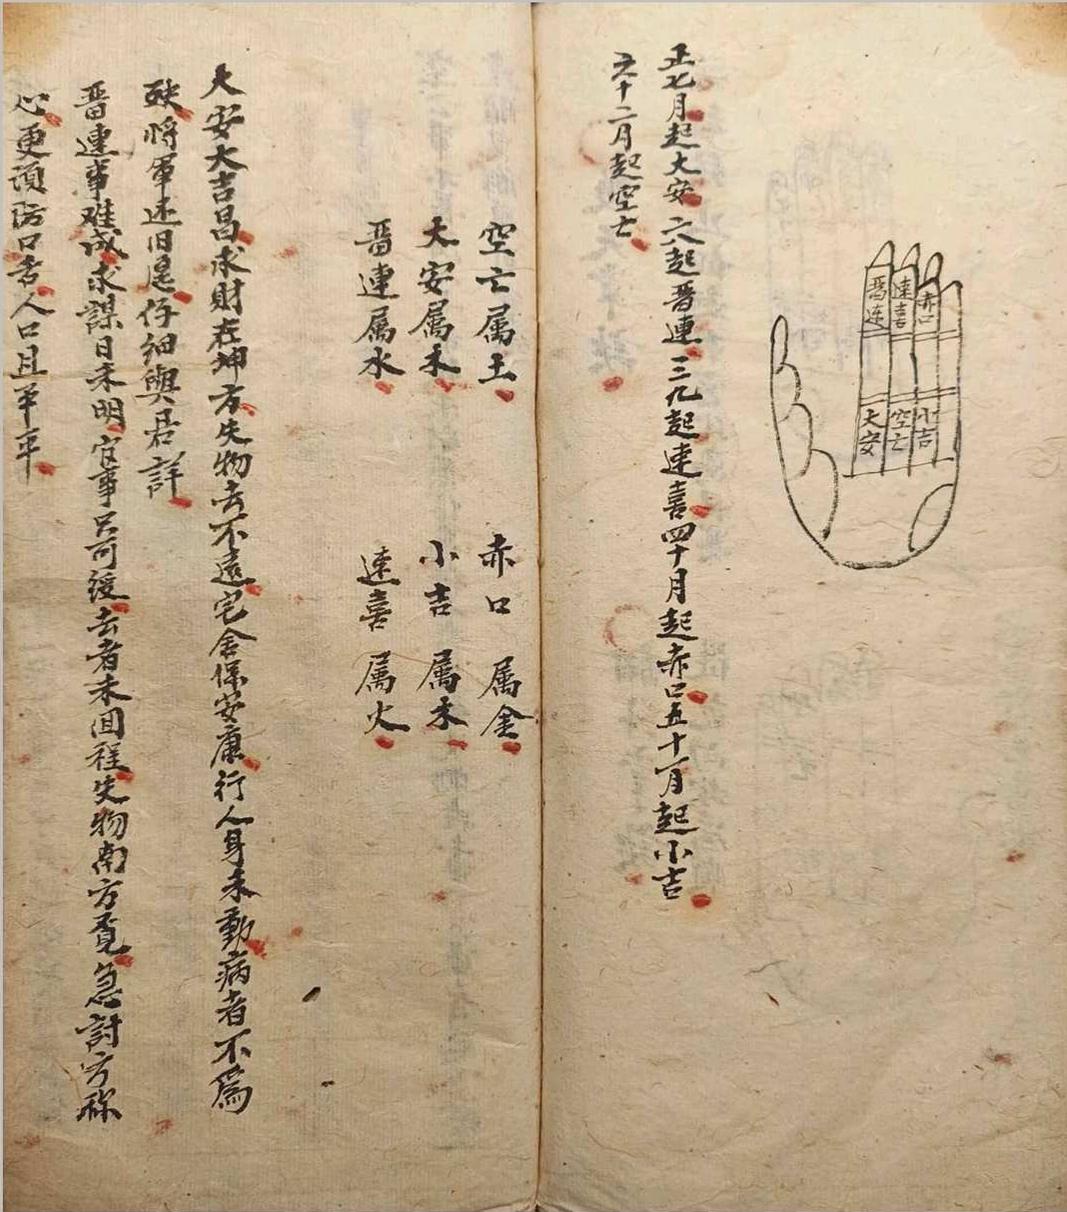 赤口
速喜
晋连
小吉
空亡
大安
正七月起大安二八起晋連三九起速喜四十月起赤口五十一月起小吉
六十二月起空亡
空亡属土 赤口属金
大安属木 小吉属木
晋連属水 速喜属火
大安大吉昌求財在坤方失物去不遠宅舍保安康行人身未動病者不為
殃將軍还旧仔細與君詳
晋連事难成求謀日未明官事只可缓去者未囬程失物南方覓急討方称
心更須防口舌人口且平平